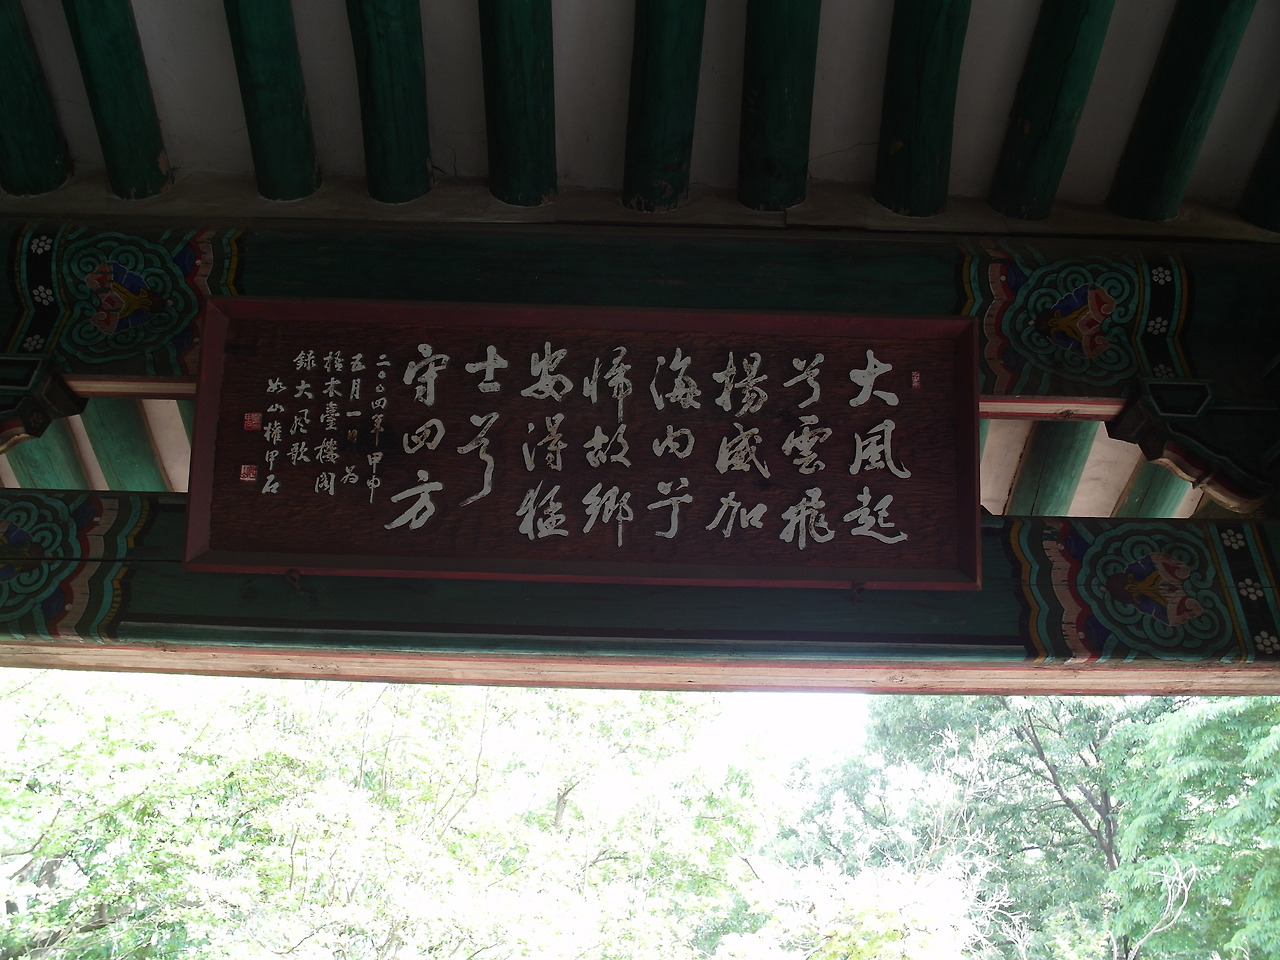 大風起
兮雲飛
揚威加
海內兮
帰故鄉
安得猛
士兮
守四方
二〇〇四年甲申
五月一日為
梧木臺樓閣
錄大風歌
如山權甲石